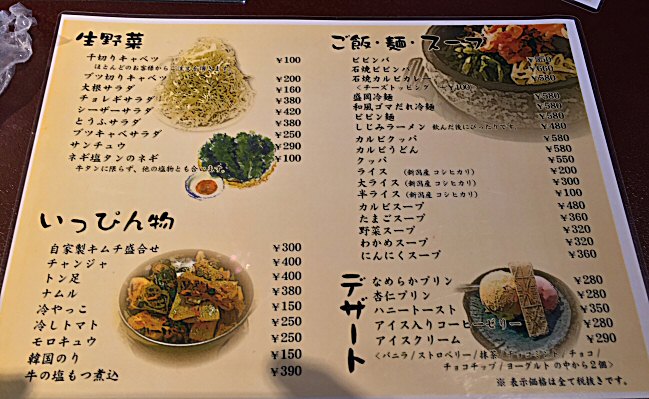 生野菜
千切りキャベツ ¥100
ほとんどのお客様から
ブツ切りキャベツ ¥200
大根サラダ ¥160
チョレギサラダ ¥380
シーザーサラダ ¥420
とうふサラダ ¥380
ブツキャベサラダ ¥250
サンチュウ ¥290
ネギ塩タンのネギ ¥100
牛タンに限らず、他の塩物とも合います。
いっぴん物
自家製キムチ盛合せ ¥300
チャンジャ ¥400
トン足 ¥400
ナムル ¥380
冷やっこ ¥150
冷しトマト ¥250
モロキュウ ¥250
韓国のり ¥150
牛の塩もつ煮込 ¥390
ご飯・麺・スープ
ビビンバ
石焼ビビンバ
石焼カルビカレー ¥580
<チーズトッピング> ¥100
盛岡冷麺 ¥580
和風ゴマだれ冷麺 ¥580
ビビン麺 ¥580
しじみラーメン 飲んだ後にぴったりです。 ¥480
カルビクッパ ¥580
カルビうどん ¥580
クッパ ¥550
ライス (新潟産 コシヒカリ) ¥200
大ライス (新潟産 コシヒカリ) ¥300
半ライス (新潟産 コシヒカリ) ¥100
カルビスープ ¥480
たまごスープ ¥360
野菜スープ ¥320
わかめスープ ¥320
にんにくスープ ¥360
デザート
なめらかプリン ¥280
杏仁プリン ¥280
ハニートースト ¥350
アイス入りコーヒーゼリー ¥280
アイスクリーム ¥290
<バニラ/ストロベリー/抹茶/チョコミント/チョコ/
チョコチップ/ヨーグルト の中から2個>
※ 表示価格は全て税抜きです。